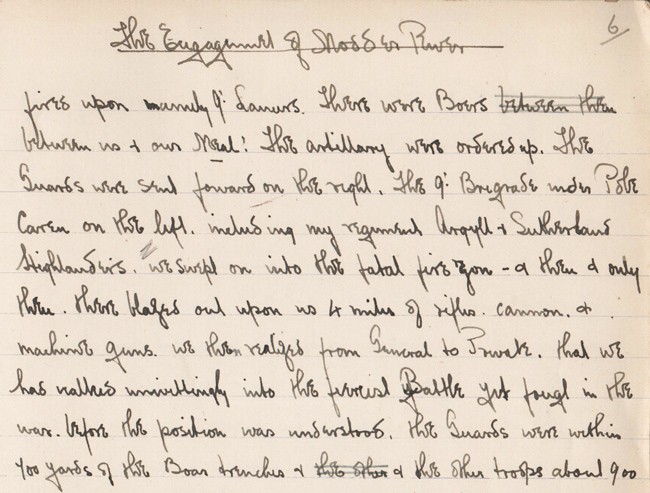 6
The Engagement of Modder River
fired upon namely 9' Lancers. There were Boers between them
between us & our Meal! The artillary were ordered up. The
Guards were sent forward on the right. The 9' Bregrade under Pole
Carew on the left. including my regiment Argyll & Sutherland
Highlanders. we swept on into the fatal fire zon - & then & only
then. there blazed out upon us 4 miles of rifles. cannon. &
machine guns. we then realized from General to Private. that we
had walked unwittingly into the fiercist Battle yet fougt in the
war. before the position was understood. the Guards were within
400 yards of the Boar trenches & the other & the other troops about 900